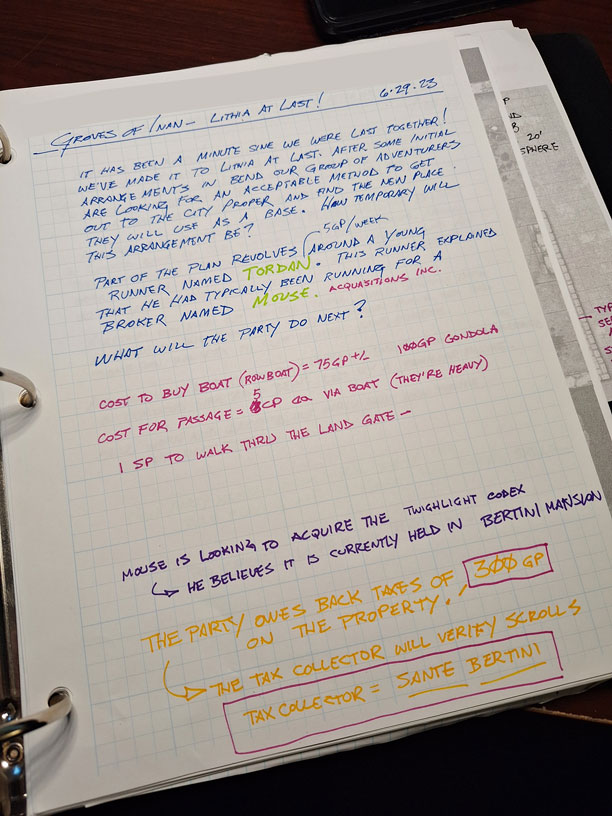 GROVES OF INAN - LITHIA AT LAST! 6.29.23
IT HAS BEEN A MINUTE SINE WE WERE LAST TOGETHER!
WE'VE MADE IT TO LITHIA AT LAST. AFTER SOME INITIAL
ARRANGEMENTS IN BEND OUR GROUP OF ADVENTURERS
ARE LOOKING FOR AN ACCEPTABLE METHOD TO GET
OUT TO THE CITY PROPER AND FIND THE NEW PLACE
THEY WILL USE AS A BASE. HOW TEMPORARY WILL
THIS ARRANGEMENT BE?
5GP/WEEK
PART OF THE PLAN REVOLVES AROUND A YOUNG
RUNNER NAMED TORDAN. THIS RUNNER EXPLAINED
THAT HE HAD TYPICALLY BEEN RUNNING FOR A
BROKER NAMED MOUSE. ACQUASITIONS INC.
WHAT WILL THE PARTY DO NEXT?
COST TO BUY BOAT (ROWBOAT) = 75GP +/- 100GP GONDOLA
5
COST FOR PASSAGE = CP ea VIA BOAT (THEY'RE HEAVY)
1 SP TO WALK THRU THE LAND GATE -
MOUSE IS LOOKING TO ACQUIRE THE TWIGHLIGHT CODEX
↳ HE BELIEVES IT IS CURRENTLY HELD IN BERTINI MANSION
THE PARTY OWES BACK TAXES OF 300 GP
ON THE PROPERTY.
↳ THE TAX COLLECTOR WILL VERIFY SCROLLS
TAX COLLECTOR = SANTE BERTINI
20'
SPHERE